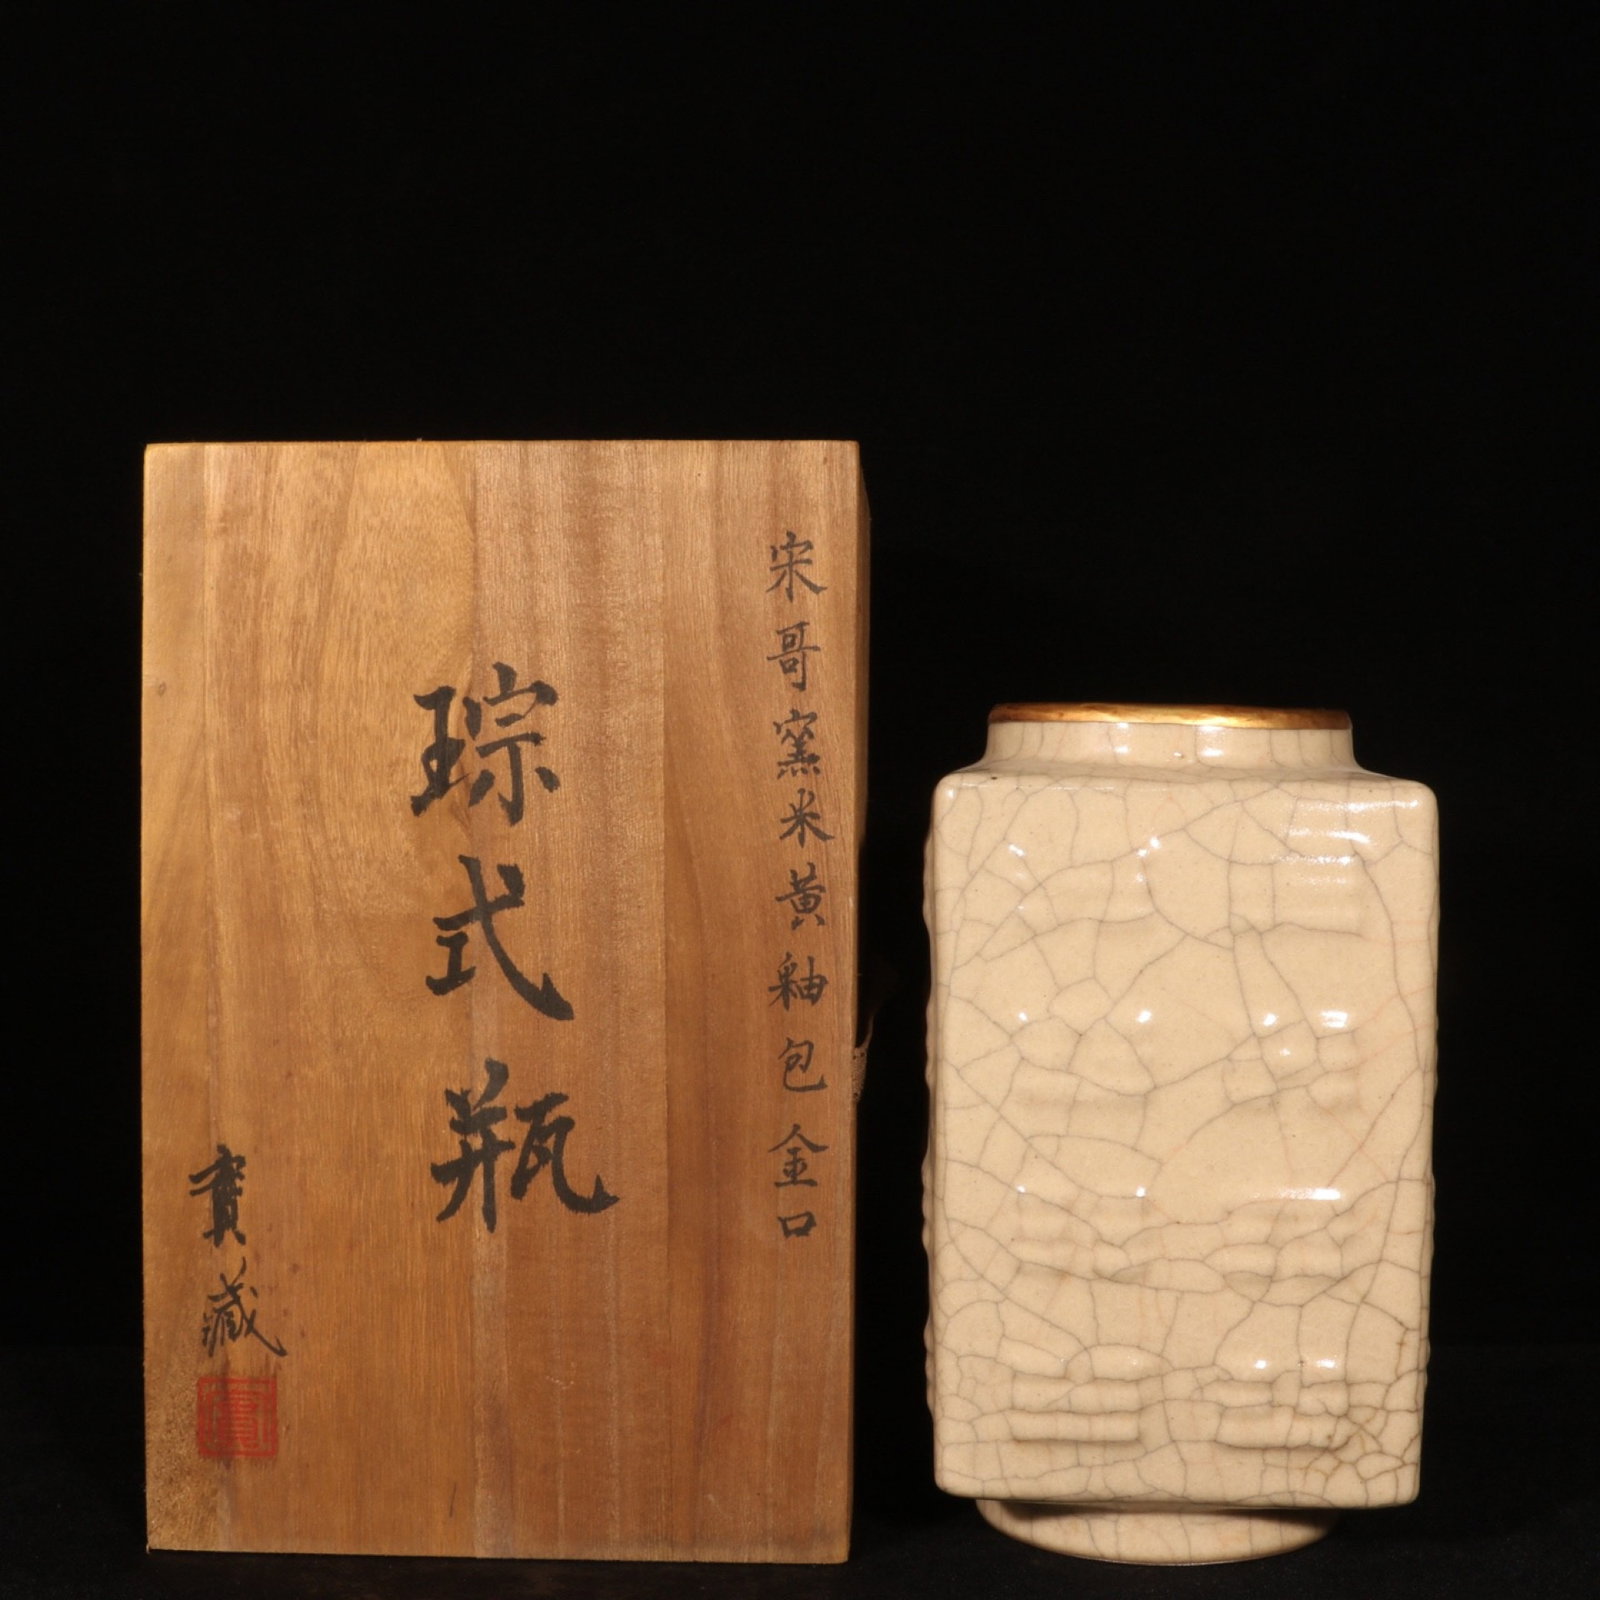 宋哥窯米黃釉包金口
琮式瓶
寶藏